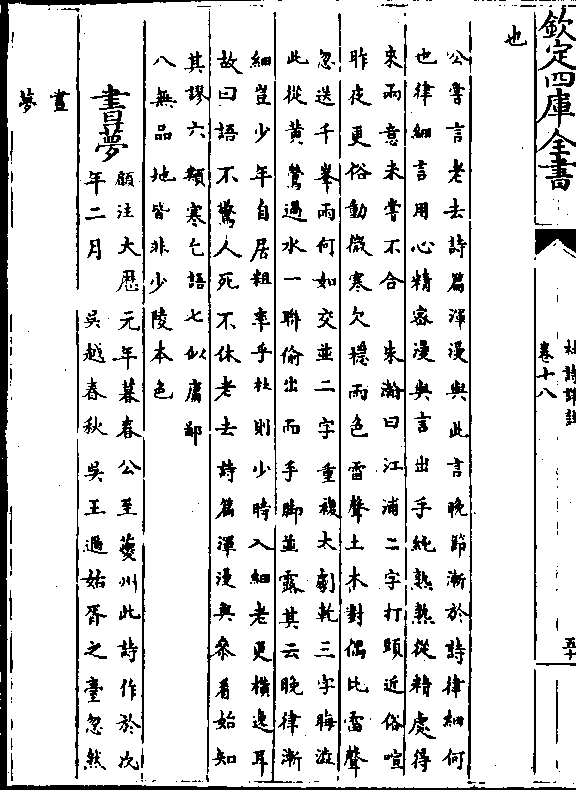 欽定四庫全書
杜詩詳註
卷十八
五十
也
公嘗言老去詩篇渾漫與此言晚節漸於詩律細何
也律細言用心精密漫與言出手純熟熟從精處得
來兩意未嘗不合　朱瀚曰江浦二字打頭近俗喧
昨夜更俗動微寒欠穩雨色雷聲土木對偶比雷聲
忽送千峯雨何如交並二字重複太劇乾三字晦澁
此從黄鶯過水一聯偷出而手脚並露其云晚律漸
細豈少年自居粗率乎杜則少時入細老更橫逸耳
故曰語不驚人死不休老去詩篇渾漫與參看始知
其謬六類寒乞語七似庸鄙
八無品地皆非少陵本色
晝夢
顧注大厯元年暮春公至夔州此詩作於次
年二月　吳越春秋吳王過姑胥之臺忽然
晝
夢